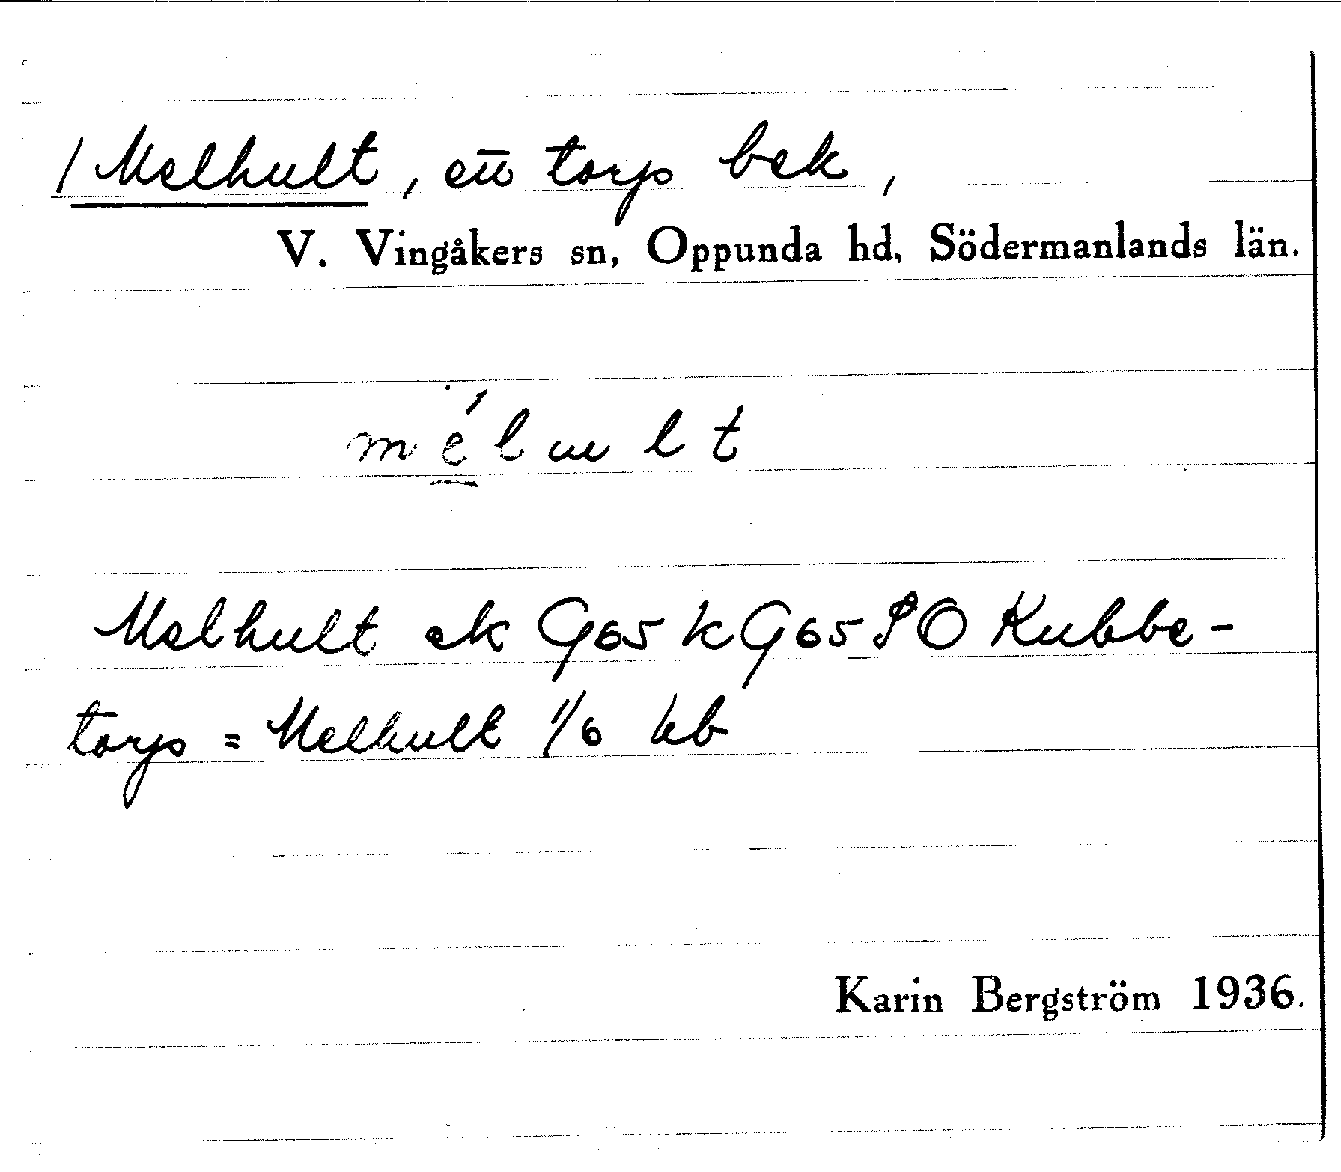 / Melhult, ett torp bek,
V. Vingåkers sn, Oppunda hd, Södermanlands län.
mélult
Melhult ek G65 k G65 SO Kubbe-
torp = Melhult 1/6 kb
Karin Bergström 1936.